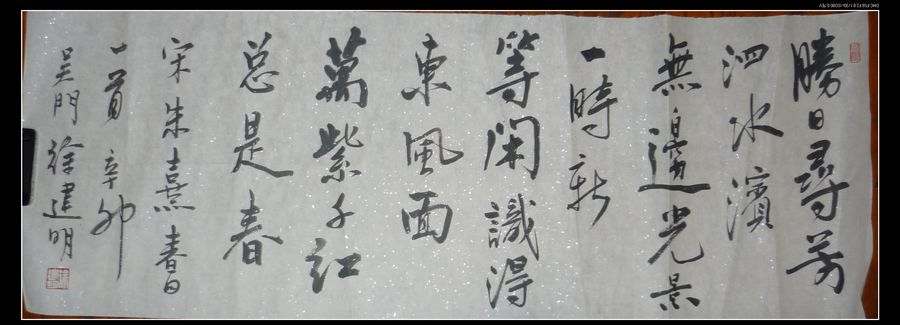 勝日尋芳
泗水濱
無邊光景
一時新
等閑識得
東風面
萬紫千紅
总是春
宋朱熹春日
一首辛卯
吴門徐建明